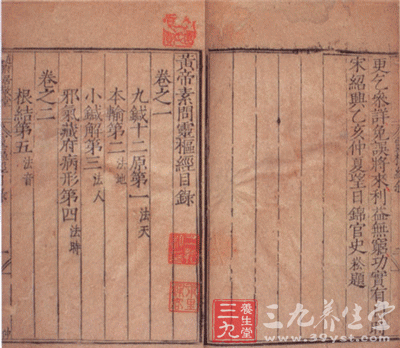 更乞衆詳免誤將來利益無窮功實有
宋紹興乙亥仲夏望日錦官史崧題
黃帝素問靈樞經目錄
卷之一
九鍼十二原第一 法天
本輸第二 法地
小鍼解第三 法人
邪氣藏府病形第四 法時
卷之二
根結第五 法音
三九
養生堂
三九养生堂
www.39yst.com